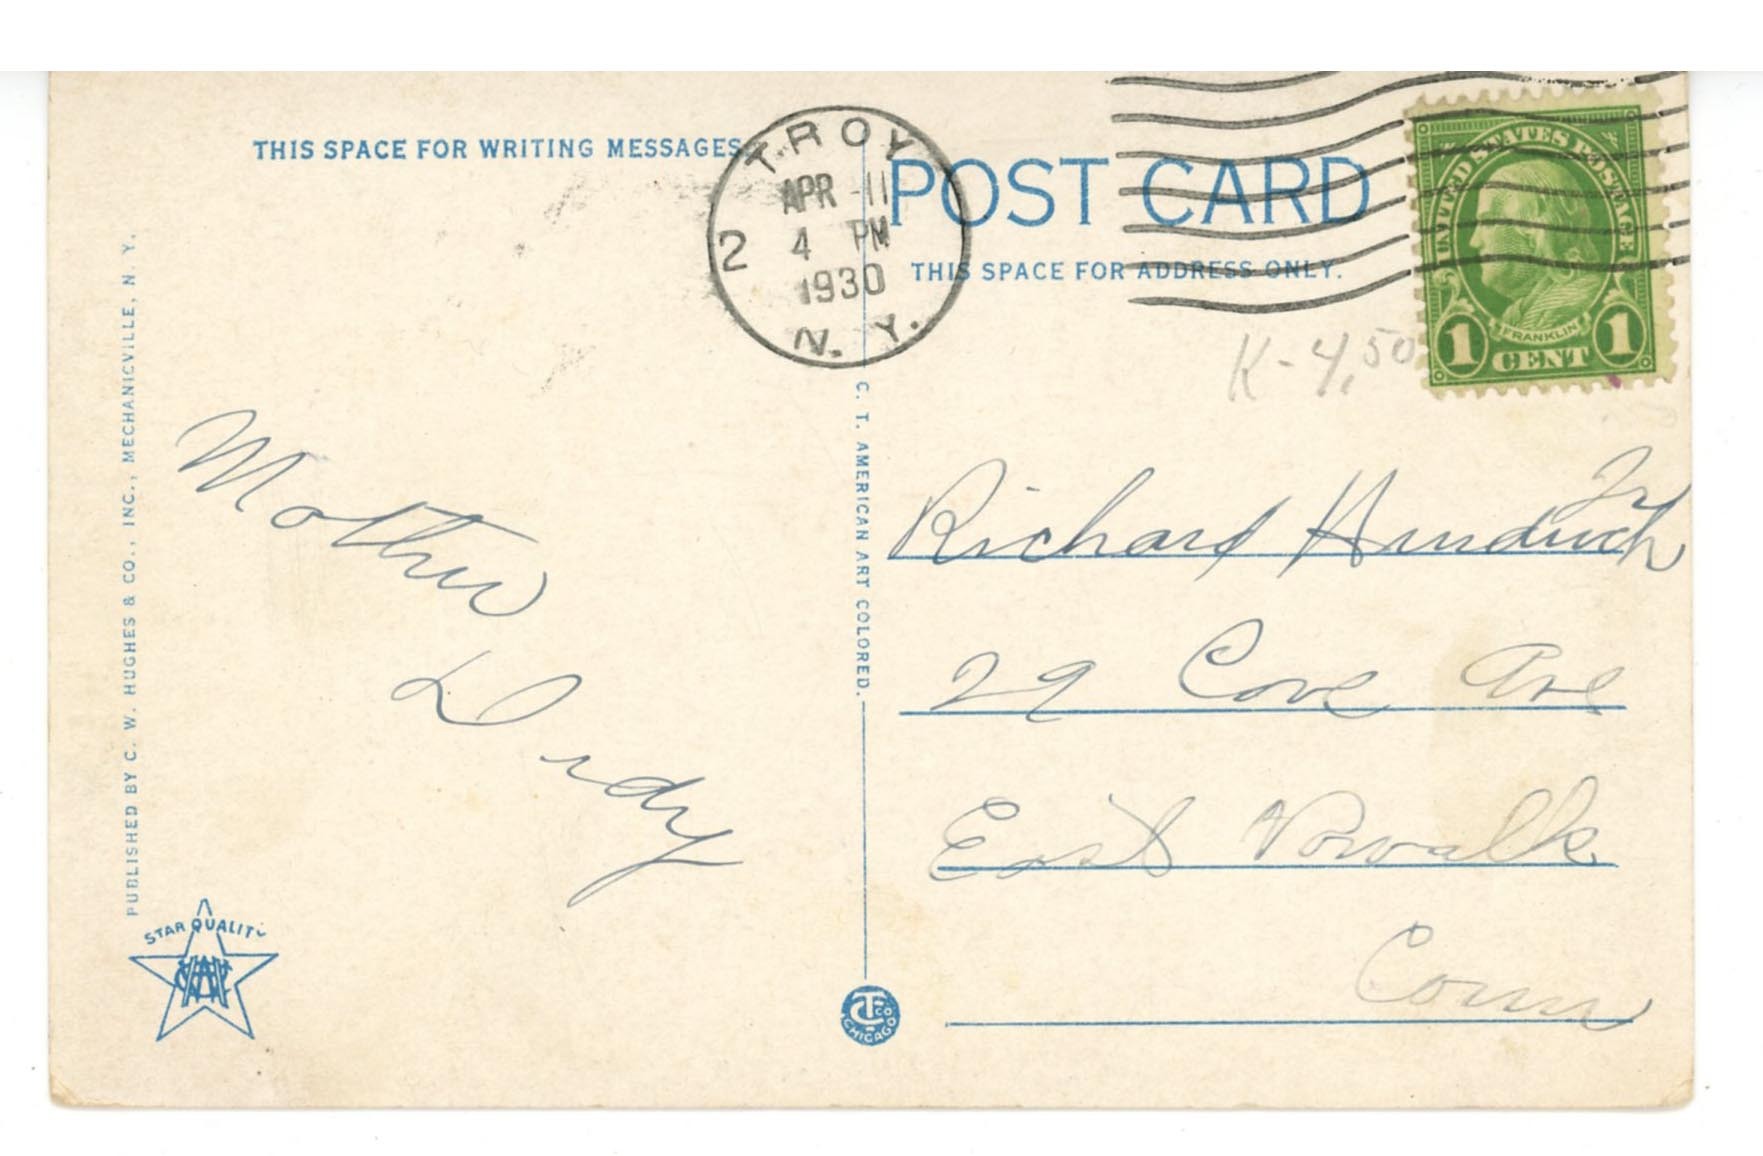 THIS SPACE FOR WRITING MESSAGES
TROY
APR 11
4 PM
1930
2
N. Y.
POST CARD
THIS SPACE FOR ADDRESS ONLY.
UNITED STATES POSTAGE
FRANKLIN
1 CENT 1
K-4,50
Mother
Richard Jr
29 Cove Ave
East Norwalk
Conn
PUBLISHED BY C. W. HUGHES & CO., INC., MECHANICVILLE, N. Y.
C. T. AMERICAN ART COLORED.
STAR QUALITY
CT CO
CHICAGO